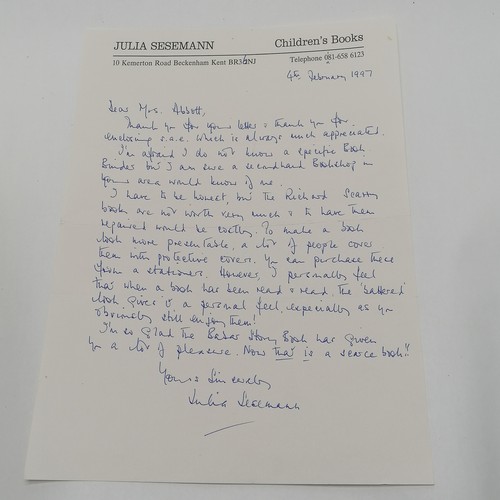 JULIA SESEMANN Children's Books
10 Kemerton Road Beckenham Kent BR3 6NJ Telephone 081-658 6123
4th February 1997
Dear Mrs. Abbott,
Thank you for your letter & thank you for
enclosing s.a.e. which is always much appreciated.
I'm afraid I do not know a specific Book
Binder but I am sure a secondhand Bookshop in
your area would know of one.
I have to be honest, but the Richard Scarry
books are not worth very much & to have them
repaired would be costly. To make a book
look more presentable, a lot of people cover
them with protective covers. You can purchase these
from a stationers. However, I personally feel
that when a book has been read & read, the 'battered'
look gives it a personal feel, especially as you
obviously still enjoy them!
I'm so glad the Babar Story Book has given
you a lot of pleasure. Now that is a scarce book!!
Yours Sincerely
Julia Sesemann